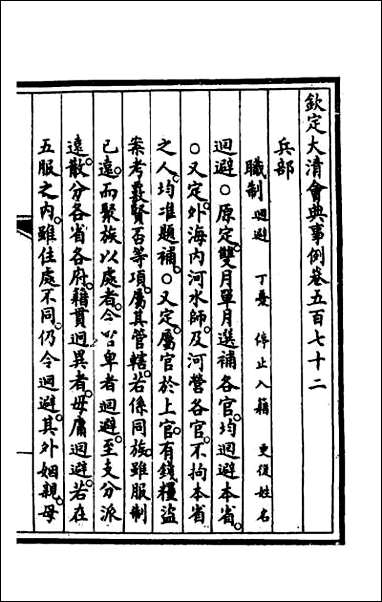 欽定大清會典事例卷五百七十二
兵部
職制 迴避 丁憂 停止入籍 更復姓名
迴避○原定雙月單月選補各官均迴避本省
○又定外海內河水師及河營各官不拘本省
之人均准題補○又定屬官於上官有錢糧盜
案考覈賢否等項屬其管轄若係同族雖服制
已遠而聚族以處者令官卑者迴避至支分派
遠散分各省各府籍貫迥異者毋庸迴避若在
五服之內雖住處不同仍令迴避其外姻親母